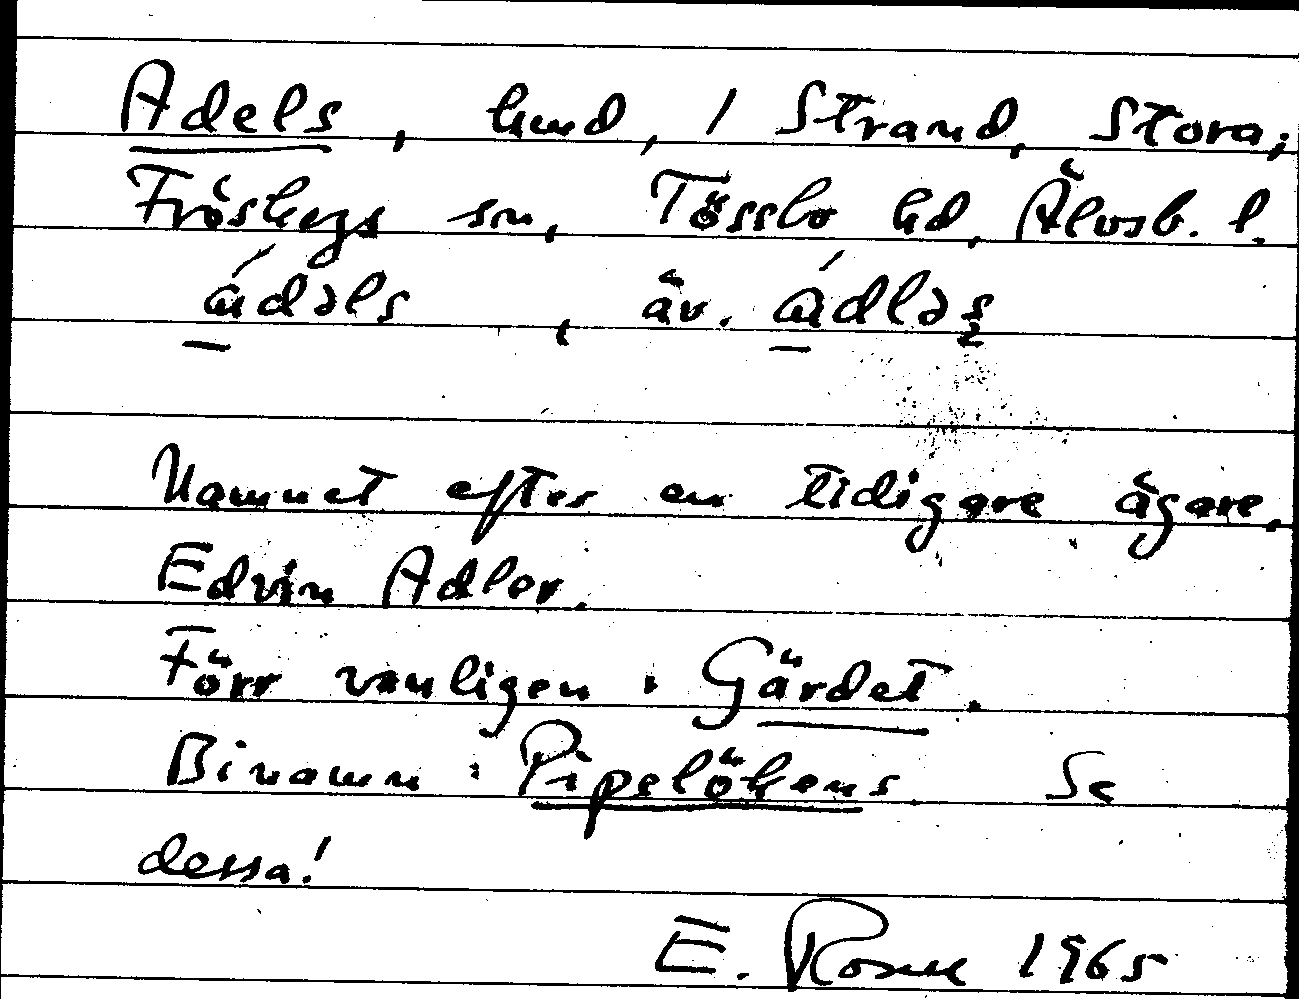 Adels, hmd, / Strand, Stora;
Fröskogs sn, Tössbo hd, Älvsb. l.
ádəls, äv. ádləs
Namnet efter en tidigare ägare,
Edvin Adler.
Förr vanligen: Gärdet.
Binamn: Pipelökens. Se
dessa!
E. Rosell 1965